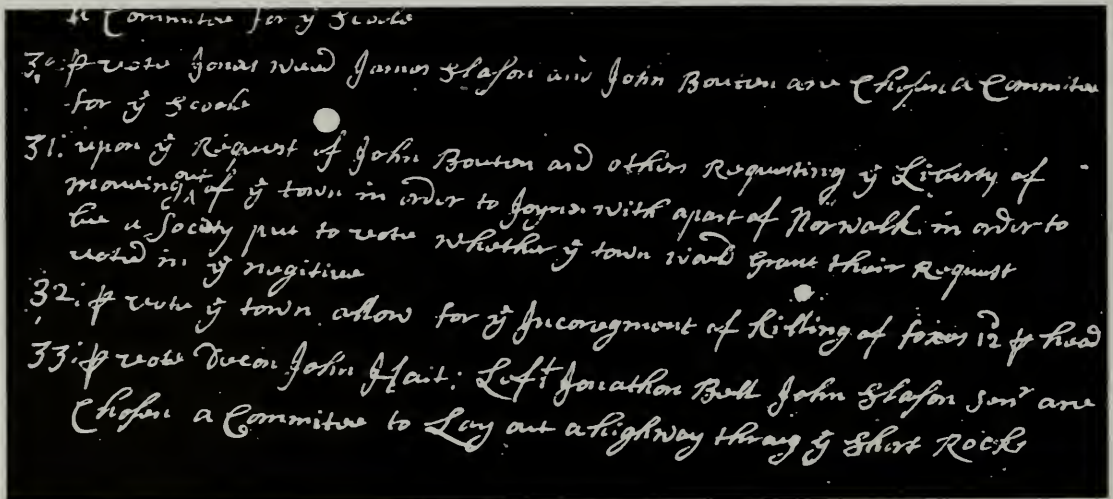 a Committee for yͤ Scoole
30: ꝑ vote Jonas weed James Slason and John Bouton are Chosen a Committee
for yͤ Scoole
31: upon yͤ Request of John Bouton and others Requesting yͤ Liberty of
moveing out of yͤ town in order to Joyne with a part of Norwalk in order to
be a Society put to vote whether yͤ town would Grant their Request
voted in yͤ negitive
32: ꝑ vote yͤ town allow for yͤ Incoregment of killing of foxes 12d ꝑ head
33: ꝑ vote Decon John Hait: Left Jonathon Bell John Slason senr are
Chosen a Committee to Lay out a highway throug yͤ Short Rocks